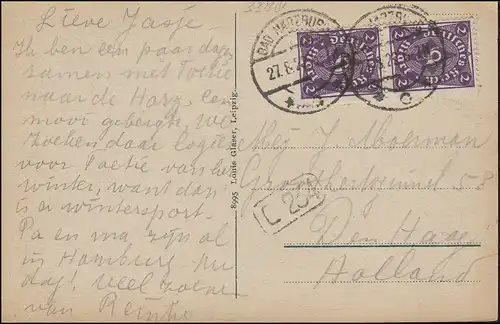 Lieve Jasje
Ik ben een paar dagen
samen met Toetie
naar de Harz, een
mooi gebergte. We
zoeken daar logies
voor Toetie van de
winter, want dan
is er wintersport.
Pa en ma zijn al
in Hamburg. Nu
dag! Veel zoenen
van
8995 Louis Glaser, Leipzig.
BAD HARZBURG
27.8.2
Deutsches Reich
2 Mark 2
Deutsches Reich
2 Mark 2
C 204
Mej J. Moerman
58
Den Haag
Holland